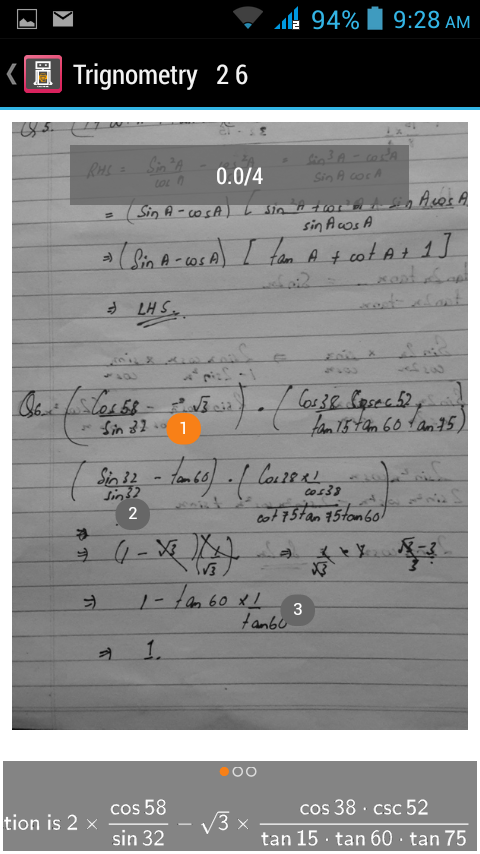 94% 9:28 AM
Trignometry 2 6
Q5.
RHS = Sin³A / cos A - cos²A = sin³A - cos³A / sin A cos A
0.0/4
= (Sin A - cos A) [ sin²A + cos²A + sin A cos A / sin A cos A
⇒ (Sin A - cos A) [ tan A + cot A + 1 ]
⇒ LHS.
Q6. ( Cos 58 / sin 32 - √3 ) . ( Cos 38 Cosec 52 / tan 15 tan 60 tan 75 )
1
( Sin 32 / sin 32 - tan 60 ) . ( Cos 38 × 1 / cos 38 / cot 75 tan 75 tan 60 )
2
⇒ (1 - √3) ( 1 / √3 ) ⇒
⇒ 1 - tan 60 × 1 / tan 60
3
⇒ 1.
tion is 2 × cos 58 / sin 32 − √3 × cos 38 · csc 52 / tan 15 · tan 60 · tan 75